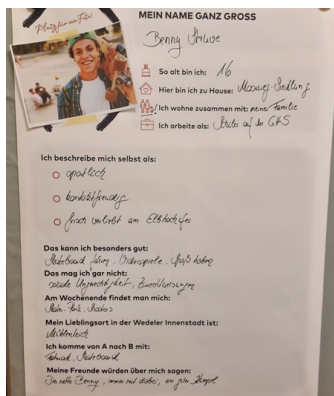 Platz für ein Foto!
MEIN NAME GANZ GROSS
Benny Struwe
So alt bin ich: 16
Hier bin ich zu Hause: Moorweg-Siedlung
Ich wohne zusammen mit: meiner Familie
Ich arbeite als: Schüler auf der GHS
Ich beschreibe mich selbst als:
sportlich
kontaktfreudig
frisch verliebt am
Das kann ich besonders gut:
Skateboard fahren, Videospiele, Spaß haben
Das mag ich gar nicht:
soziale Ungerechtigkeit,
Am Wochenende findet man mich:
Skate-Park,
Mein Lieblingsort in der Wedeler Innenstadt ist:
Mühlenteich
Ich komme von A nach B mit:
Fahrrad, Skateboard
Meine Freunde würden über mich sagen:
Der nette Benny, immer mit dabei, ein guter Kumpel